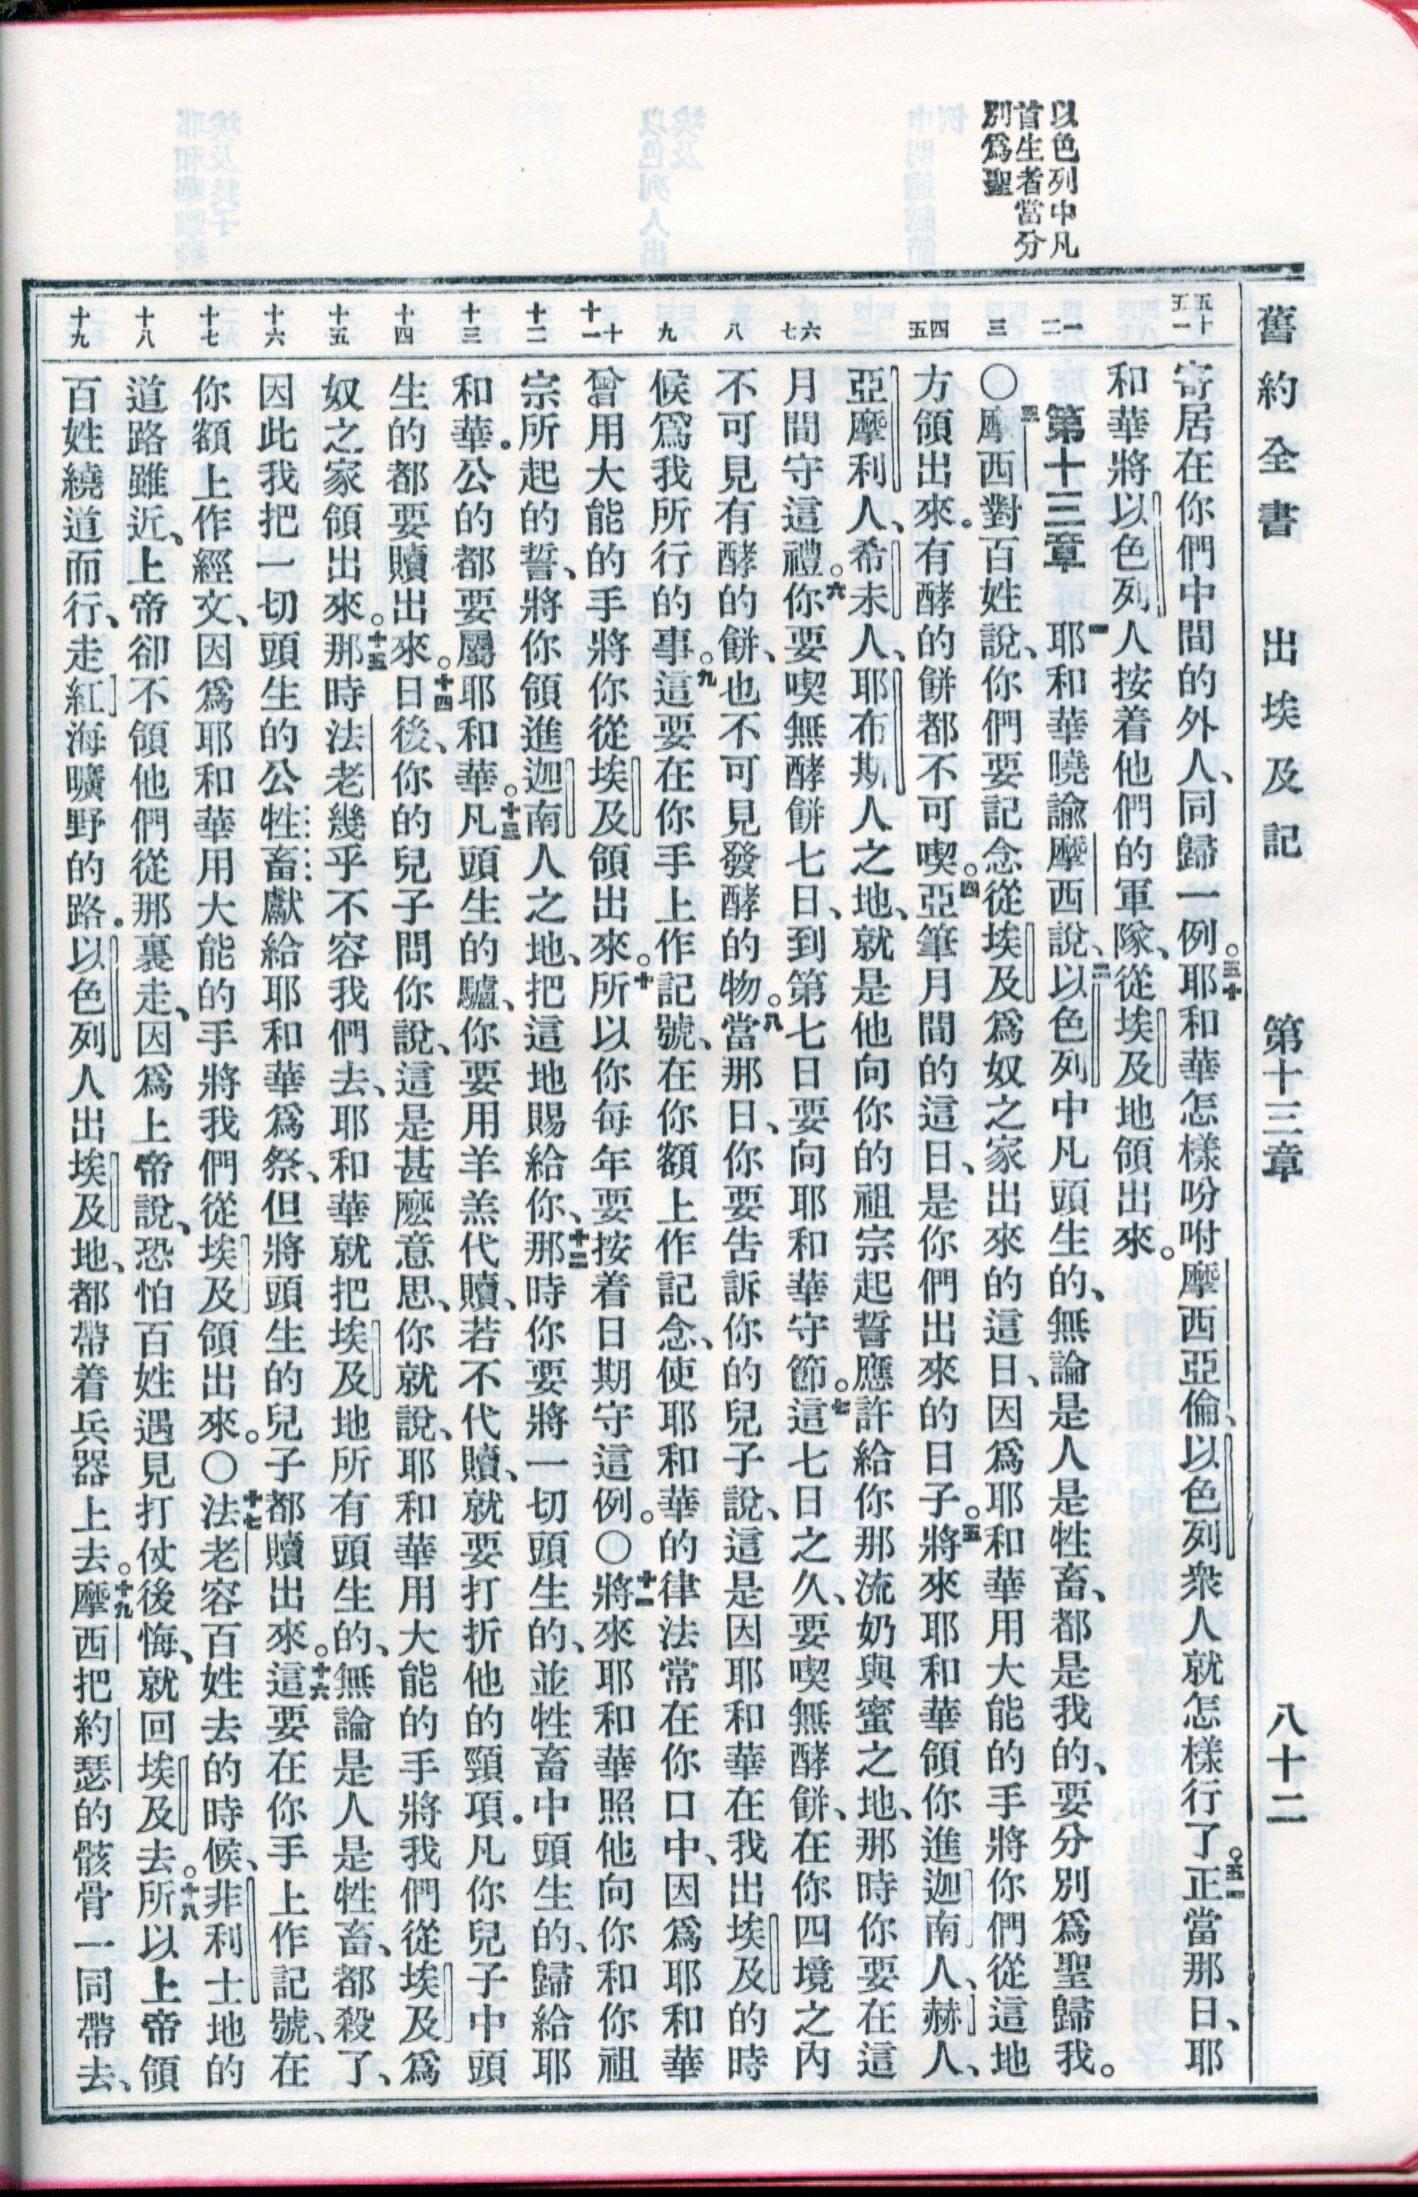 以色列中凡
首生者當分
別爲聖
舊約全書 出埃及記 第十三章 八十二
五十
五一
一
二
三
四
五
六
七
八
九
十
十一
十二
十三
十四
十五
十六
十七
十八
十九
寄居在你們中間的外人、同歸一例。五十耶和華怎樣吩咐摩西亞倫、以色列衆人就怎樣行了。○五一正當那日、耶
和華將以色列人按着他們的軍隊、從埃及地領出來。
第十三章 一耶和華曉諭摩西說、二以色列中凡頭生的、無論是人是牲畜、都是我的、要分別爲聖歸我。
○三摩西對百姓說、你們要記念從埃及爲奴之家出來的這日、因爲耶和華用大能的手將你們從這地
方領出來。有酵的餅都不可喫。四亞筆月間的這日、是你們出來的日子。五將來耶和華領你進迦南人、赫人、
亞摩利人、希未人、耶布斯人之地、就是他向你的祖宗起誓應許給你那流奶與蜜之地、那時你要在這
月間守這禮。六你要喫無酵餅七日、到第七日要向耶和華守節。七這七日之久、要喫無酵餅、在你四境之內
不可見有酵的餅、也不可見發酵的物。八當那日、你要告訴你的兒子說、這是因耶和華在我出埃及的時
候爲我所行的事。九這要在你手上作記號、在你額上作記念、使耶和華的律法常在你口中、因爲耶和華
曾用大能的手將你從埃及領出來。十所以你每年要按着日期守這例。○十一將來耶和華照他向你和你祖
宗所起的誓、將你領進迦南人之地、把這地賜給你、十二那時你要將一切頭生的、並牲畜中頭生的、歸給耶
和華。公的都要屬耶和華。十三凡頭生的驢、你要用羊羔代贖、若不代贖、就要打折他的頸項。凡你兒子中頭
生的都要贖出來。十四日後、你的兒子問你說、這是甚麽意思、你就說、耶和華用大能的手將我們從埃及爲
奴之家領出來。十五那時法老幾乎不容我們去、耶和華就把埃及地所有頭生的、無論是人是牲畜、都殺了、
因此我把一切頭生的公牲畜獻給耶和華爲祭、但將頭生的兒子都贖出來。十六這要在你手上作記號、在
你額上作經文、因爲耶和華用大能的手將我們從埃及領出來。○十七法老容百姓去的時候、非利士地的
道路雖近、上帝卻不領他們從那裏走、因爲上帝說、恐怕百姓遇見打仗後悔、就回埃及去。十八所以上帝領
百姓繞道而行、走紅海曠野的路。以色列人出埃及地、都帶着兵器上去。十九摩西把約瑟的骸骨一同帶去、